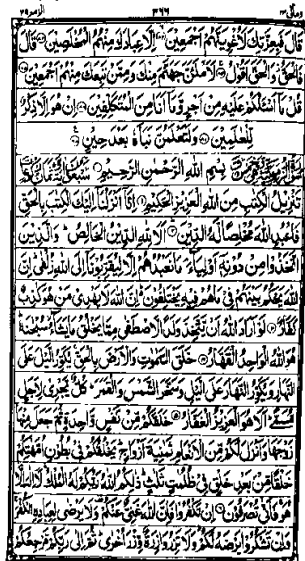 ومالی ٢٣ ٣٦٦ الزمر ٣٩
قَالَ فَبِعِزَّتِكَ لَأُغْوِيَنَّهُمْ أَجْمَعِينَ ۝ إِلَّا عِبَادَكَ مِنْهُمُ الْمُخْلَصِينَ ۝ قَالَ
فَالْحَقُّ وَالْحَقَّ أَقُولُ ۝ لَأَمْلَئَنَّ جَهَنَّمَ مِنْكَ وَمِمَّنْ تَبِعَكَ مِنْهُمْ أَجْمَعِينَ ۝
قُلْ مَا أَسْئَلُكُمْ عَلَيْهِ مِنْ أَجْرٍ وَمَا أَنَا مِنَ الْمُتَكَلِّفِينَ ۝ إِنْ هُوَ إِلَّا ذِكْرٌ
لِلْعَالَمِينَ ۝ وَلَتَعْلَمُنَّ نَبَأَهُ بَعْدَ حِينٍ ۝
بِسْمِ اللهِ الرَّحْمٰنِ الرَّحِيمِ
تَنْزِيلُ الْكِتٰبِ مِنَ اللهِ الْعَزِيزِ الْحَكِيمِ ۝ إِنَّا أَنْزَلْنَا إِلَيْكَ الْكِتٰبَ بِالْحَقِّ
فَاعْبُدِ اللهَ مُخْلِصًا لَهُ الدِّينَ ۝ أَلَا لِلّٰهِ الدِّينُ الْخَالِصُ وَالَّذِينَ
اتَّخَذُوا مِنْ دُونِهِ أَوْلِيَاءَ مَا نَعْبُدُهُمْ إِلَّا لِيُقَرِّبُونَا إِلَى اللهِ زُلْفٰى إِنَّ
اللهَ يَحْكُمُ بَيْنَهُمْ فِي مَا هُمْ فِيهِ يَخْتَلِفُونَ ۝ إِنَّ اللهَ لَا يَهْدِي مَنْ هُوَ كٰذِبٌ
كَفَّارٌ ۝ لَوْ أَرَادَ اللهُ أَنْ يَتَّخِذَ وَلَدًا لَاصْطَفٰى مِمَّا يَخْلُقُ مَا يَشَاءُ سُبْحٰنَهُ
هُوَ اللهُ الْوَاحِدُ الْقَهَّارُ ۝ خَلَقَ السَّمٰوٰتِ وَالْأَرْضَ بِالْحَقِّ يُكَوِّرُ الَّيْلَ عَلَى
النَّهَارِ وَيُكَوِّرُ النَّهَارَ عَلَى الَّيْلِ وَسَخَّرَ الشَّمْسَ وَالْقَمَرَ كُلٌّ يَجْرِي لِأَجَلٍ
مُسَمًّى أَلَا هُوَ الْعَزِيزُ الْغَفَّارُ ۝ خَلَقَكُمْ مِنْ نَفْسٍ وَاحِدَةٍ ثُمَّ جَعَلَ مِنْهَا
زَوْجَهَا وَأَنْزَلَ لَكُمْ مِنَ الْأَنْعَامِ ثَمٰنِيَةَ أَزْوَاجٍ يَخْلُقُكُمْ فِي بُطُونِ أُمَّهٰتِكُمْ
خَلْقًا مِنْ بَعْدِ خَلْقٍ فِي ظُلُمٰتٍ ثَلٰثٍ ذٰلِكُمُ اللهُ رَبُّكُمْ لَهُ الْمُلْكُ لَا إِلٰهَ إِلَّا
هُوَ فَأَنّٰى تُصْرَفُونَ ۝ إِنْ تَكْفُرُوا فَإِنَّ اللهَ غَنِيٌّ عَنْكُمْ وَلَا يَرْضٰى لِعِبَادِهِ الْكُفْرَ
وَإِنْ تَشْكُرُوا يَرْضَهُ لَكُمْ وَلَا تَزِرُ وَازِرَةٌ وِزْرَ أُخْرٰى ثُمَّ إِلٰى رَبِّكُمْ مَرْجِعُكُمْ